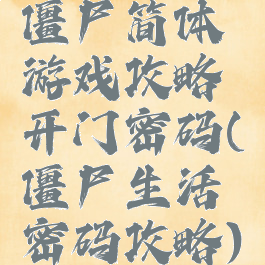 僵尸简体
游戏攻略
开门密码(
僵尸生活
密码攻略)